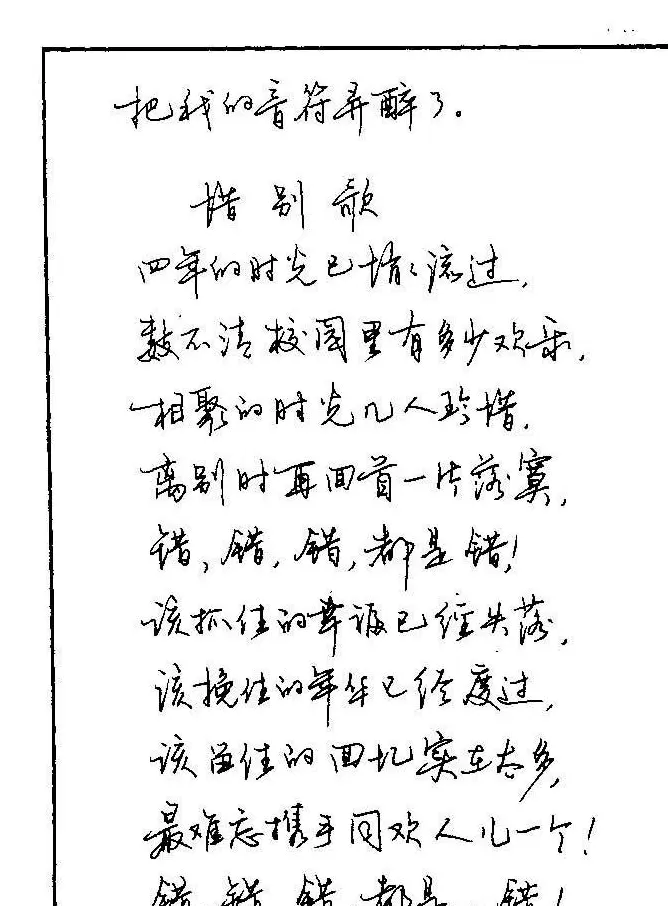 把我的音符弄醉了。
惜别歌
四年的时光已悄悄流过,
数不清校园里有多少欢乐,
相聚的时光几人珍惜,
离别时再回首一片落寞,
错,错,错,都是错!
该抓住的幸福已经失落,
该挽住的年华已经度过,
该留住的回忆实在太多,
最难忘携手同欢人儿一个!
错 错 错 都是 错!